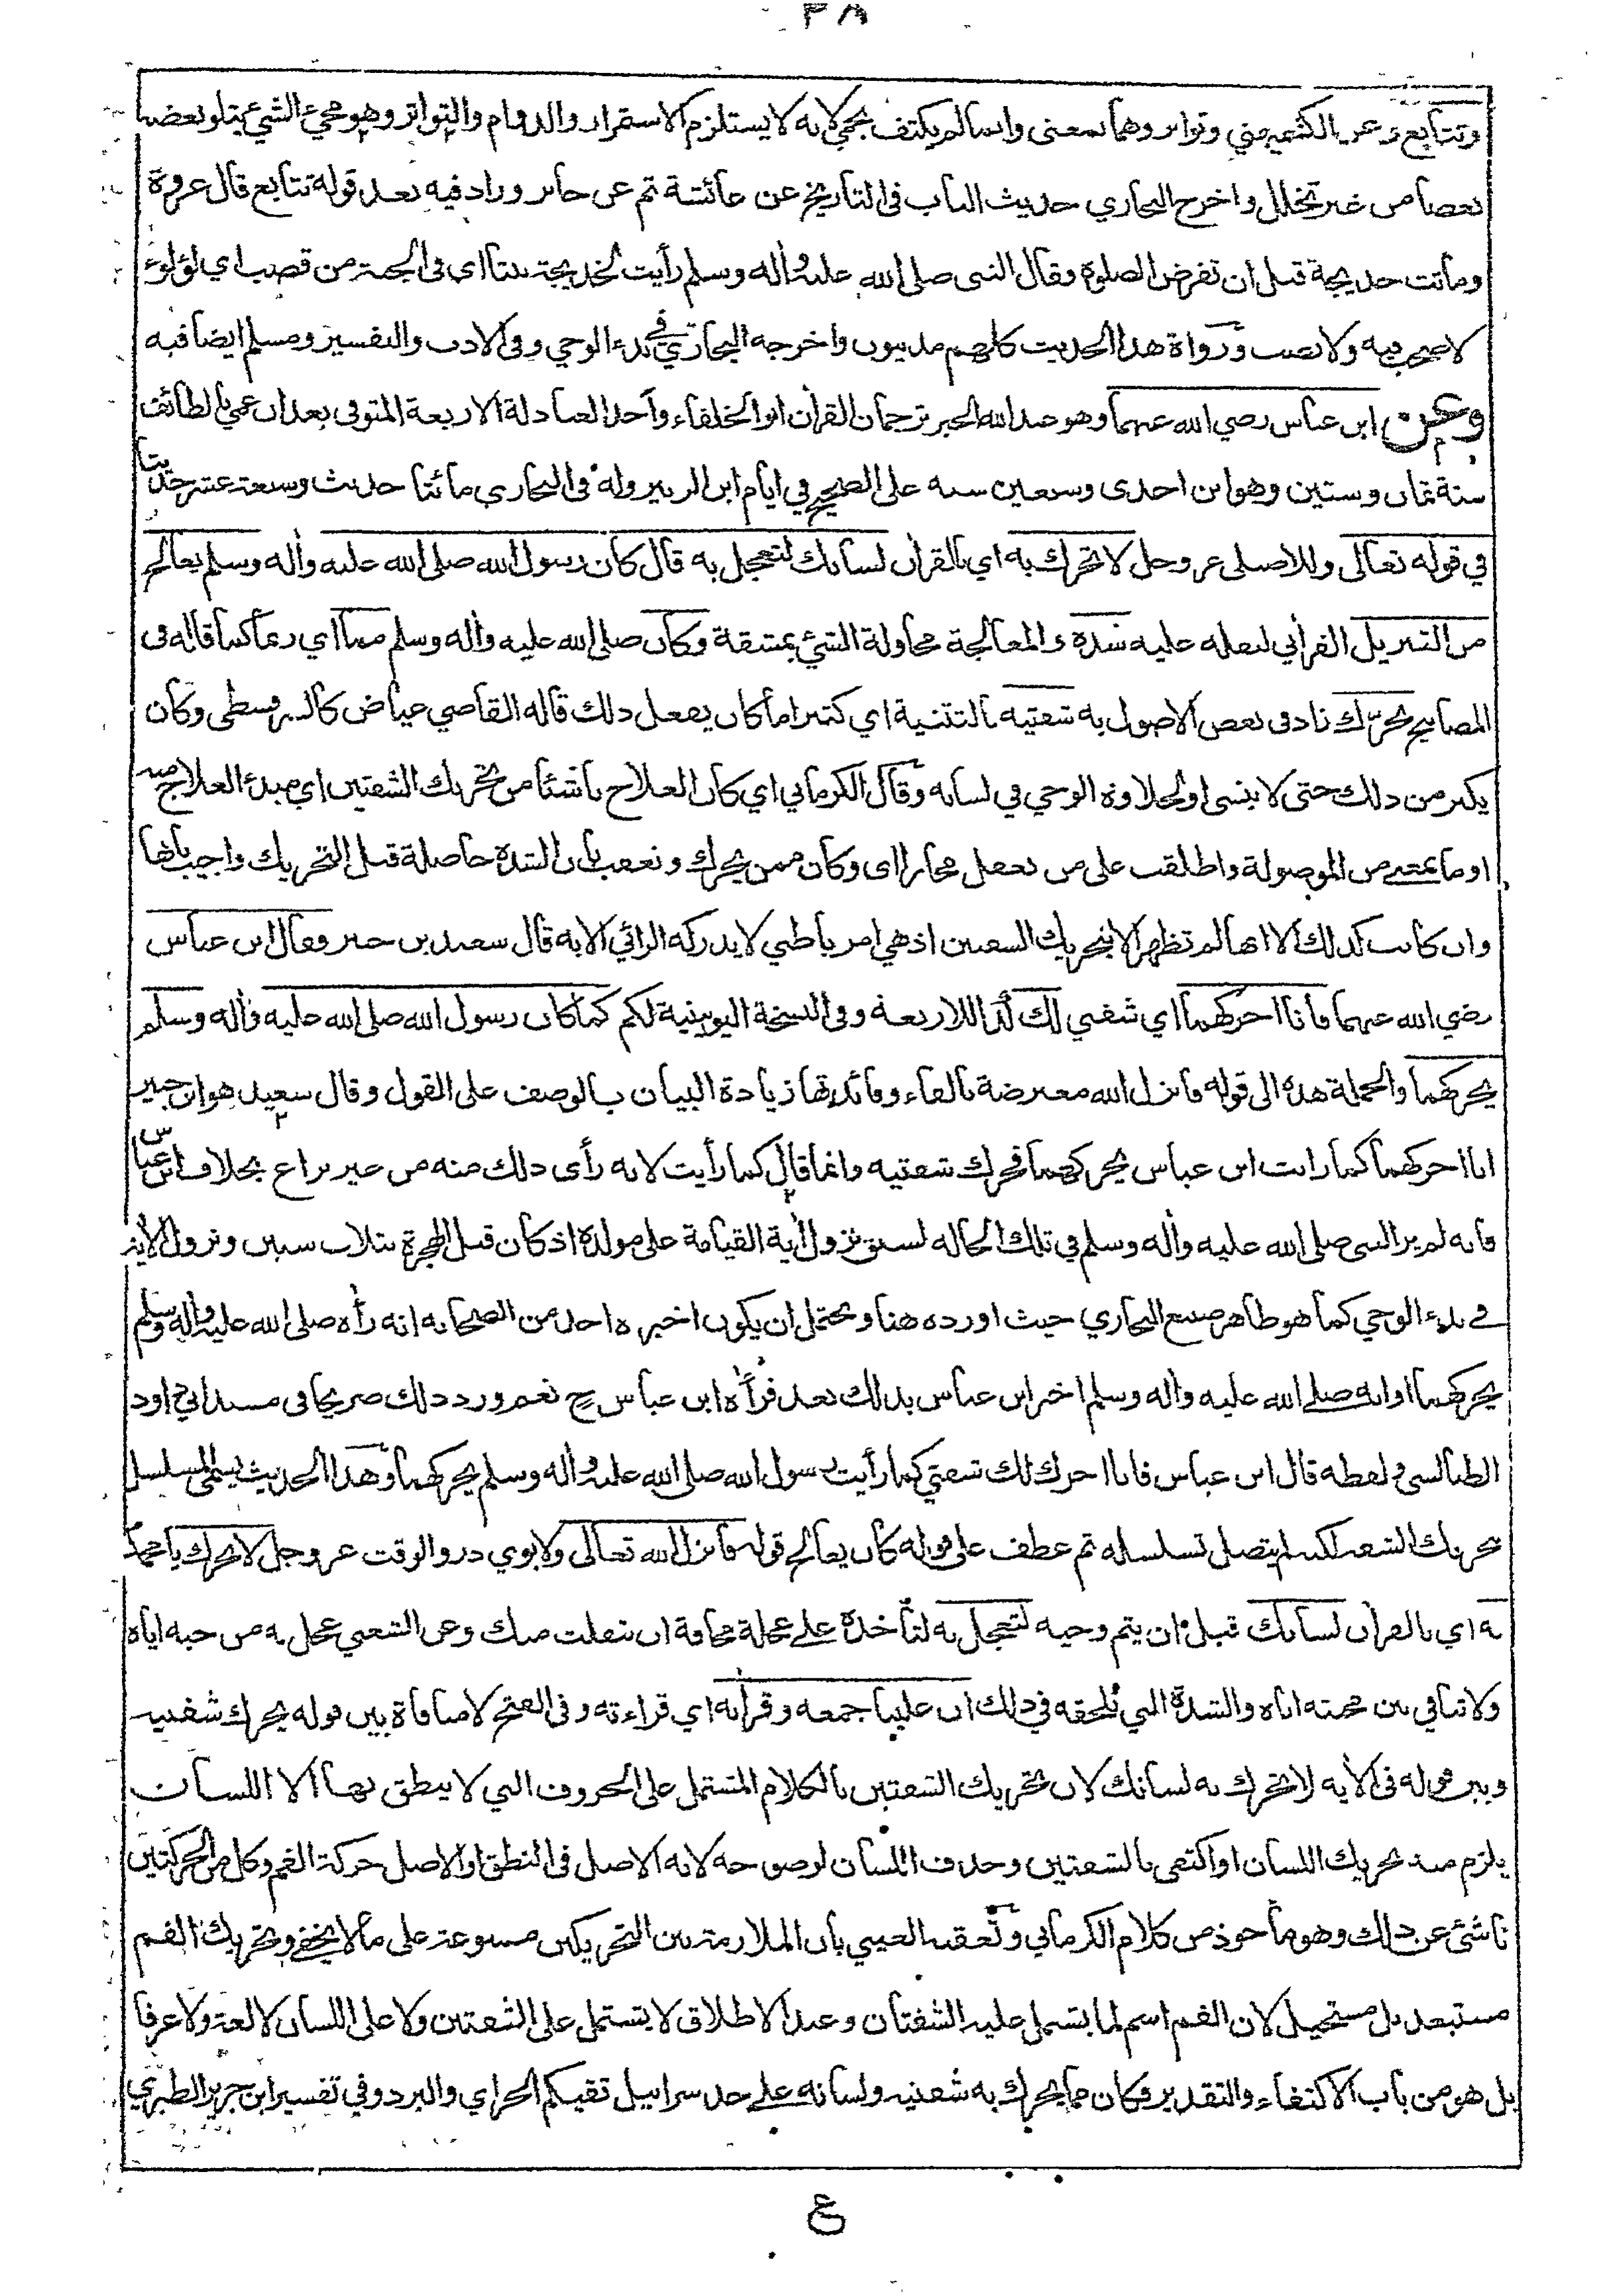 ٣٨
وتتابع وعن الكشميهني وتواتر وهما بمعنى وانما لم يكتف بحمي لانه لا يستلزم الاستمرار والدوام والتواتر وهو مجيء الشيء يتلو بعضه
بعضا من غير تخلل واخرج البخاري حديث الباب في التاريخ عن عائشة ثم عن جابر وزاد فيه بعد قوله تتابع قال عروة
وماتت خديجة قبل ان تفرض الصلوة وقال النبي صلى الله عليه واٰله وسلم رأيت لخديجة بيتا اي في الجنة من قصب اي لؤلؤ
لا صخب فيه ولا نصب ورواة هذا الحديث كلهم مدنيون واخرجه البخاري في بدء الوحي وفي الادب والتفسير ومسلم ايضا فيه
وعن ابن عباس رضي الله عنهما وهو عبد الله الحبر ترجمان القرأن ابو الخلفاء وأحد العبادلة الاربعة المتوفى بعد ان عمي بالطائف
سنة ثمان وستين وهو ابن احدى وسبعين سنه على الصحيح في ايام ابن الزبير وله في البخاري مائتا حديث وسبعة عشر حديثا
في قوله تعالى وللاصيلي عز وجل لا تحرك به اي بالقرأن لسانك لتعجل به قال كان رسول الله صلى الله عليه واٰله وسلم يعالج
من التنزيل القرأني لثقله عليه شدة والمعالجة محاولة الشيء بمشقة وكان صلى الله عليه واٰله وسلم مما اي ربما كما قاله في
المصابيح يحرّك زاد في بعض الاصول به شفتيه بالتثنية اي كثيرا ما كان يفعل ذلك قاله القاضي عياض كالسرقسطي وكان
يكثر من ذلك حتى لا ينسى او لحلاوة الوحي في لسانه وقال الكرماني اي كان العلاج ناشئا من تحريك الشفتين اي مبدء العلاج منه
او ما بمعنى من الموصولة واطلقت على من يعقل مجازا اى وكان ممن يحرك وتعقب بان الشدة حاصلة قبل التحريك واجيب بانها
وان كانت كذلك الا انها لم تظهر الا بتحريك الشفتين اذ هي امر باطني لا يدركه الرائي الا به قال سعيد بن جبير وقال ابن عباس
رضي الله عنهما فانا احركهما اي شفتي لك كذا للاربعة وفي النسخة اليونينية لكم كما كان رسول الله صلى الله عليه واٰله وسلم
يحركهما والجملة هذه الى قوله فانزل الله معترضة بالفاء وفائدتها زيادة البيان بالوصف على القول وقال سعيد هو ابن جبير
انا احركهما كما رايت ابن عباس يحركهما فحرك شفتيه وانما قال كما رأيت لانه رأى ذلك منه من غير نزاع بخلاف ابن عباس
فانه لم ير النبي صلى الله عليه واٰله وسلم في تلك الحاله لسبق نزول أية القيامة على مولده اذ كان قبل الهجرة بثلاث سنين ونزول الأية
في بدء الوحي كما هو ظاهر صنيع البخاري حيث اورده هنا ويحتمل ان يكون اخبره احد من الصحابه انه رأه صلى الله عليه واٰله وسلم
يحركهما او انه صلى الله عليه واٰله وسلم اخبر ابن عباس بذلك بعد فرأه ابن عباس ح نعم ورد ذلك صريحا في مسند ابي داود
الطيالسي ولفظه قال ابن عباس فانا احرك لك شفتي كما رأيت رسول الله صلى الله عليه واٰله وسلم يحركهما وهذا الحديث يسمى المسلسل
بتحريك الشفه لكنه لم يتصل تسلسله ثم عطف على قوله كان يعالج قوله فانزل الله تعالى ولابوي ذر والوقت عز وجل لا تحرك يا محمد
به اي بالقرأن لسانك قبل ان يتم وحيه لتعجل به لتأخذه على عجلة مخافة ان ينفلت منك وعن الشعبي عجل به من حبه اياه
ولا تنافي بين محبته اياه والشدة التي تلحقه في ذلك ان علينا جمعه وقرأنه اي قراءته وفي الفتح لا منافاة بين قوله يحرك شفتيه
وبين قوله في الأيه لا تحرك به لسانك لان تحريك الشفتين بالكلام المشتمل على الحروف التي لا ينطق بها الا اللسان
يلزم منه تحريك اللسان او اكتفى بالشفتين وحذف اللسان لوضوحه لانه الاصل في النطق او الاصل حركة الفم وكل من الحركتين
ناشئ عن ذلك وهو مأخوذ من كلام الكرماني وتعقبه العيني بان الملازمة بين التحريكين ممنوعة على ما لا يخفى وتحريك الفم
مستبعد بل مستحيل لان الفم اسم لما يشتمل عليه الشفتان وعند الاطلاق لا يشتمل على الشفتين ولا على اللسان لا لغة ولا عرفا
بل هو من باب الاكتفاء والتقدير فكان مما يحرك به شفتيه ولسانه على حد سرابيل تقيكم الحر اي والبرد وفي تفسير ابن جرير الطبري
ع